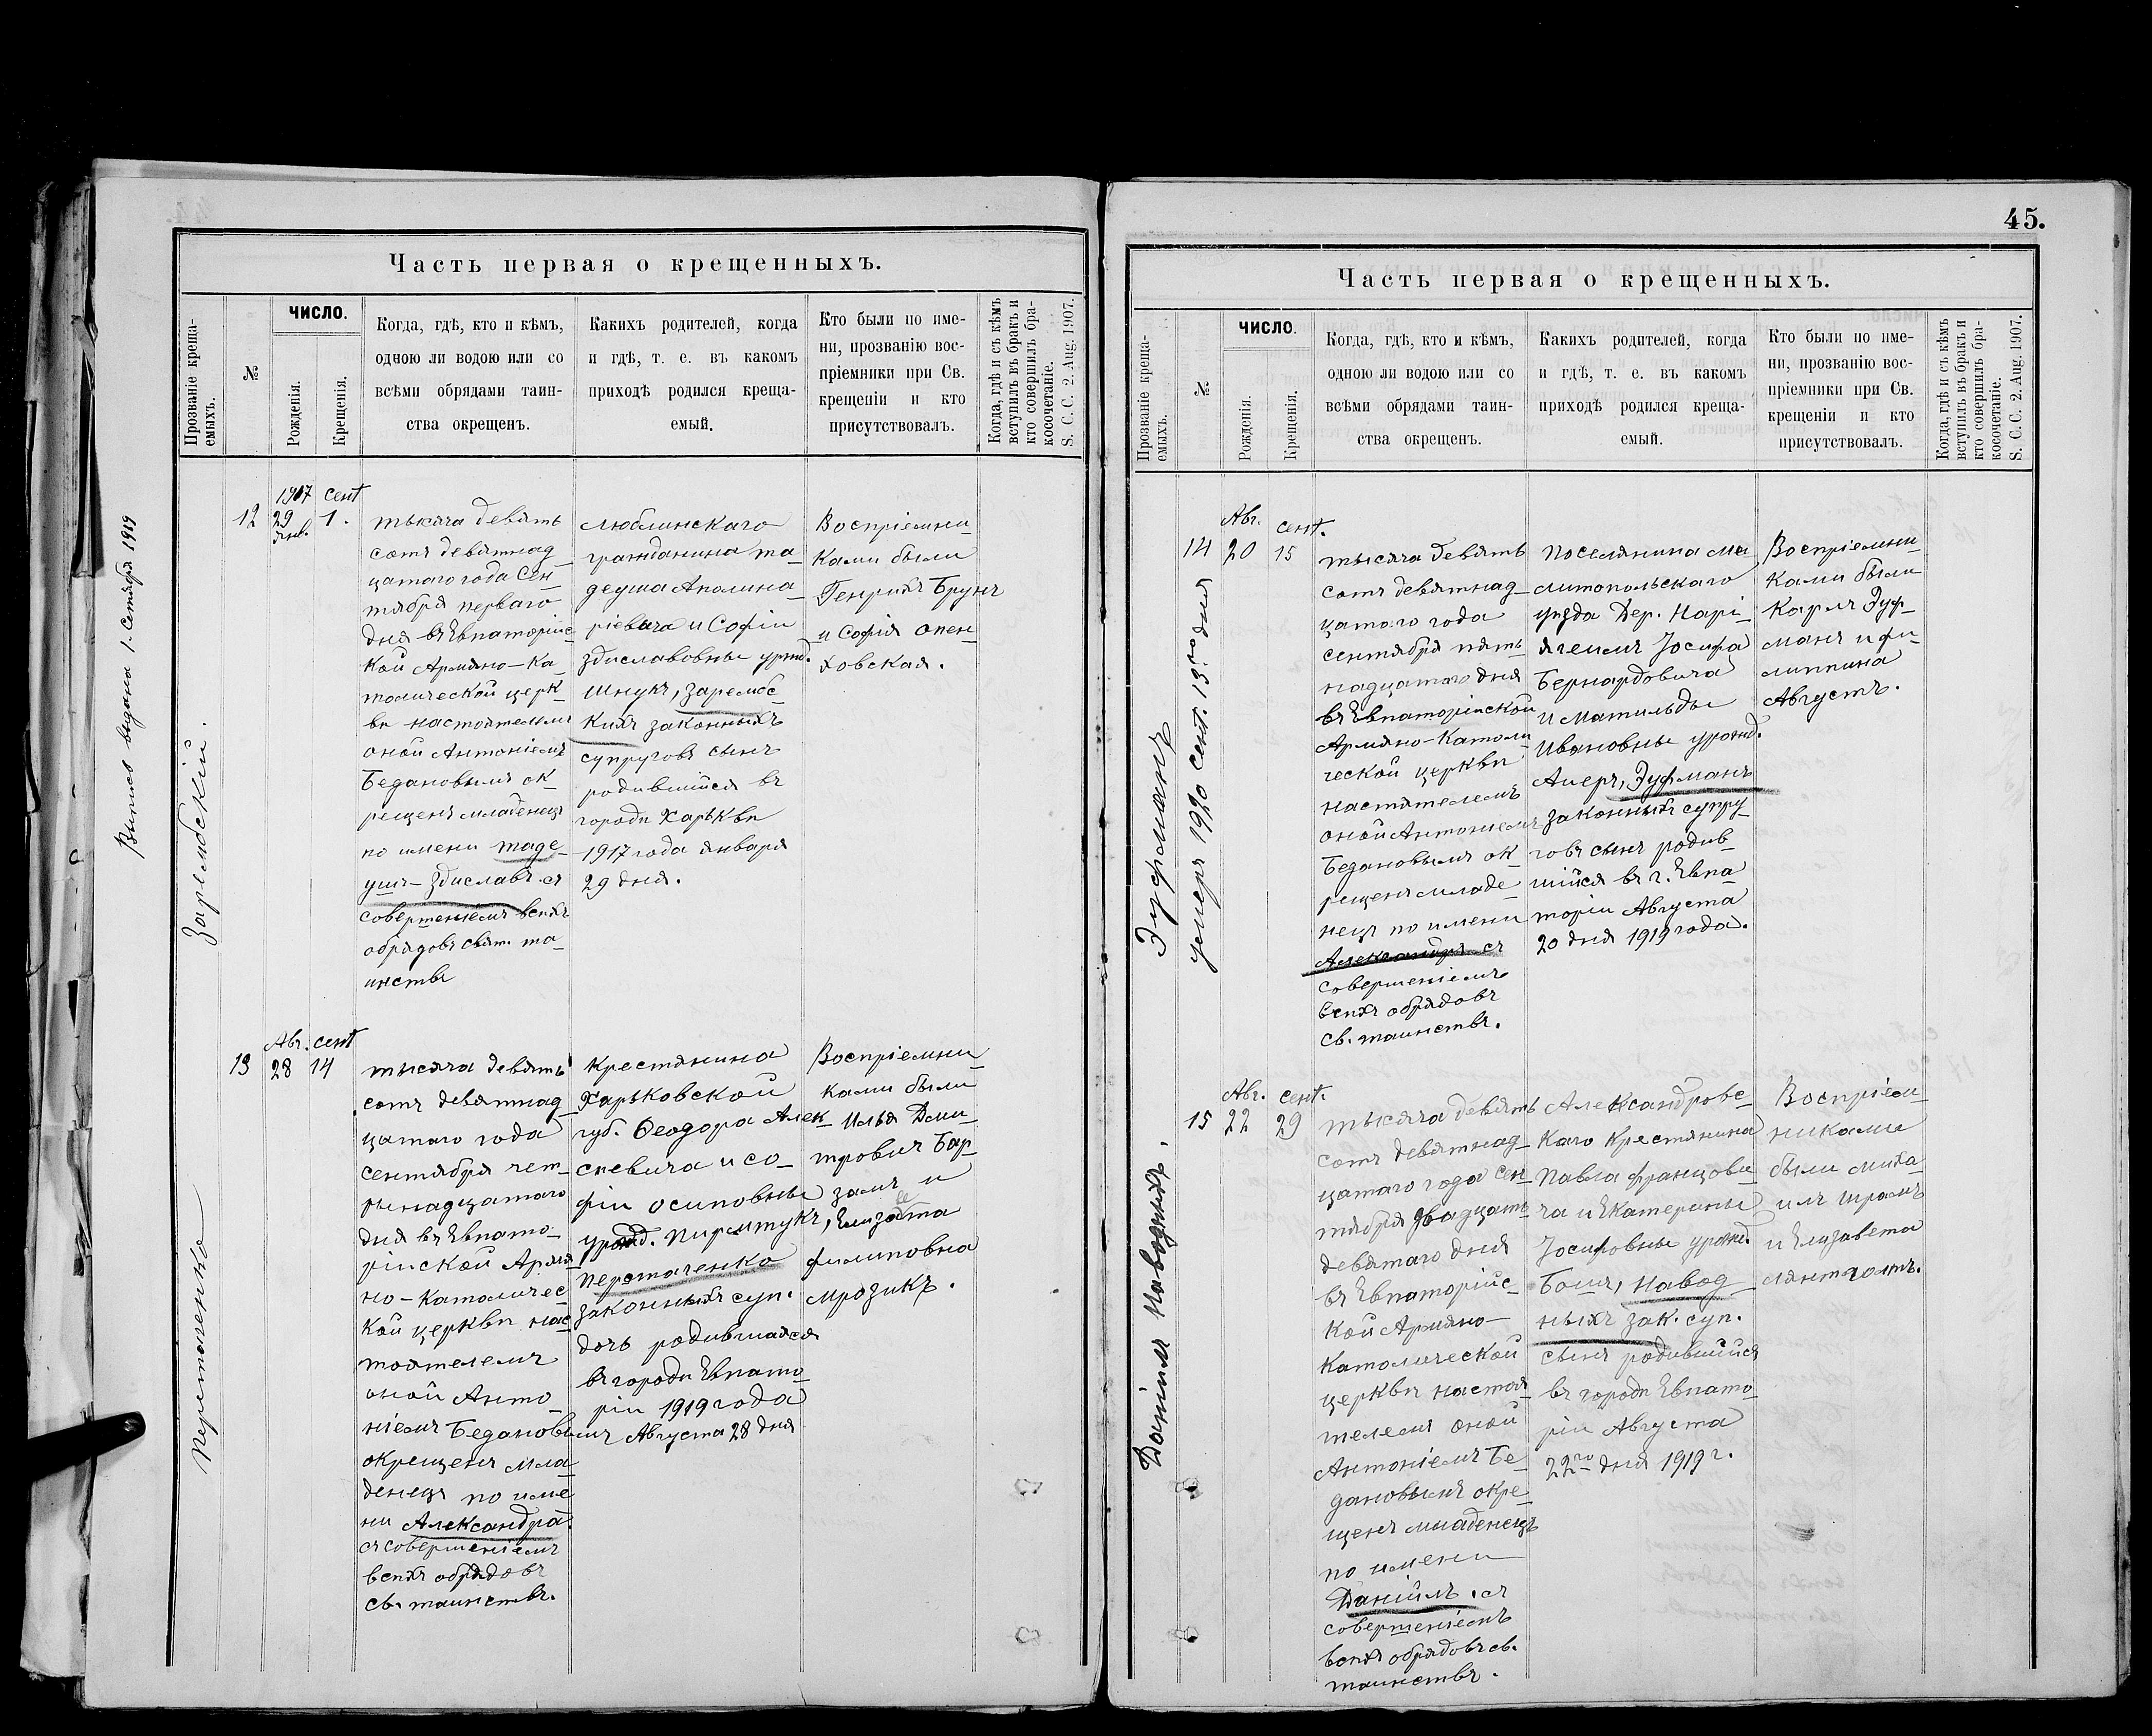 Часть первая о крещенныхъ.
Прозваніе креща-
емыхъ.
№
ЧИСЛО.
Рожденія.
Крещенія.
Когда, гдѣ, кто и кѣмъ,
одною ли водою или со
всѣми обрядами таин-
ства окрещен.
Какихъ родителей, когда
и гдѣ, т. е. въ каком
приходѣ родился креща-
емый.
Кто были по име-
ни, прозванію вос-
пріемники при Св.
крещеніи и кто
присутствовалъ.
Когда, гдѣ и съ кѣмъ
вступилъ въ бракъ и
кто совершилъ бра-
косочетаніе.
S. C. C. 2. Aug. 1907.
Выпись выдана 1. Сентября 1919
Зарембскій.
12
1917
29
Янв.
сент
1.
тысяча девять
сотъ девятнад
цатаго года Сен
тября перваго
дня въ Евпаторійс
кой Армяно-Ка
толической церк
ви настоятелемъ
оной Антоніемъ
Бедановымъ ок
рещенъ младенецъ
по имени Таде
ушъ-Здиславъ съ
совершеніемъ всѣхъ
обрядовъ свят. та
инствъ
Люблинскаго
гражданина Та
деуша Аполина
ріевича и Софіи
Здиславовны урожд.
Шнукъ, Зарембс
кихъ законныхъ
супруговъ сынъ
родившійся въ
городѣ Харьковѣ
1917 года января
29 дня.
Воспріемни
ками были
Генрихъ Брунъ
и Софія Опен
ховская.
Перетаченко
13
Авг.
28
сент
14
тысяча девять
сотъ девятнад
цатаго года
сентября чет
рынадцатаго
дня въ Евпато
рійской Армя
но-Католичес
кой церкви нас
тоятелемъ
оной Анто
ніемъ Бедановымъ
окрещенъ мла
денецъ по име
ни Александра
съ совершеніемъ
всѣхъ обрядовъ
св. таинствъ.
Крестянина
Харьковской
губ. Ѳеодора Алек
сѣевича и Со
фіи Осиповны
урожд. Пирштукъ,
Перетаченко
законныхъ суп.
дочь родившаяся
въ городѣ Евпато
ріи 1919 года
Августа 28 дня
Воспріемни
ками были
Илья Дми
тровичъ Бар
замъ и
Елизавета
Филиповна
Мрозикъ.
45.
Часть первая о крещенныхъ.
Прозваніе креща-
емыхъ.
№
ЧИСЛО.
Рожденія.
Крещенія.
Когда, гдѣ, кто и кѣмъ,
одною ли водою или со
всѣми обрядами таин-
ства окрещен.
Какихъ родителей, когда
и гдѣ, т. е. въ каком
приходѣ родился креща-
емый.
Кто были по име-
ни, прозванію вос-
пріемники при Св.
крещеніи и кто
присутствовалъ.
Когда, гдѣ и съ кѣмъ
вступилъ въ бракъ и
кто совершилъ бра-
косочетаніе.
S. C. C. 2. Aug. 1907.
Эуфманъ
умеръ 1920 сент. 13го дня
14
Авг.
20
сент.
15
тысяча девять
сотъ девятнад
цатаго года
сентября пять
надцатаго дня
въ Евпаторійской
Армяно-Католи
ческой церкви
настоятелемъ
оной Антоніемъ
Бедановымъ ок
рещенъ младе
нецъ по имени
Александръ съ
совершеніемъ
всѣхъ обрядовъ
св. таинствъ.
поселянина Ме
литопольскаго
уѣзда Дер. Марі
ягеимъ Іосифа
Бернардовича
и Матильды
Ивановны урожд.
Аперъ, Эуфманъ
законныхъ супру
говъ сынъ родив
шійся въ г. Евпа
торіи Августа
20 дня 1919 года.
Воспріемни
ками были
Карлъ Эуф
манъ и Фи
липпина
Августъ.
Даніилъ Наводныхъ.
15
Авг.
22
сент.
29
тысяча девять
сотъ девятнад
цатаго года сен
тября двадцать
девятаго дня
въ Евпаторійс
кой Армяно-
Католической
церкви настоя
телемъ оной
Антоніемъ Бе
дановымъ окре
щенъ младенецъ
по имени
Даніилъ. съ
совершеніемъ
всѣхъ обрядовъ св.
таинствъ.
Александровс
каго Крестянина
Павла Францови
ча и Екатерины
Іосифовны урожд.
Бомъ, Навод
ныхъ зак. суп.
сынъ родившійся
въ городѣ Евпато
ріи Августа
22го дня 1919 г.
Воспріем
никами
были Миха
илъ Шрамъ
и Елизавета
Лянтголтъ.